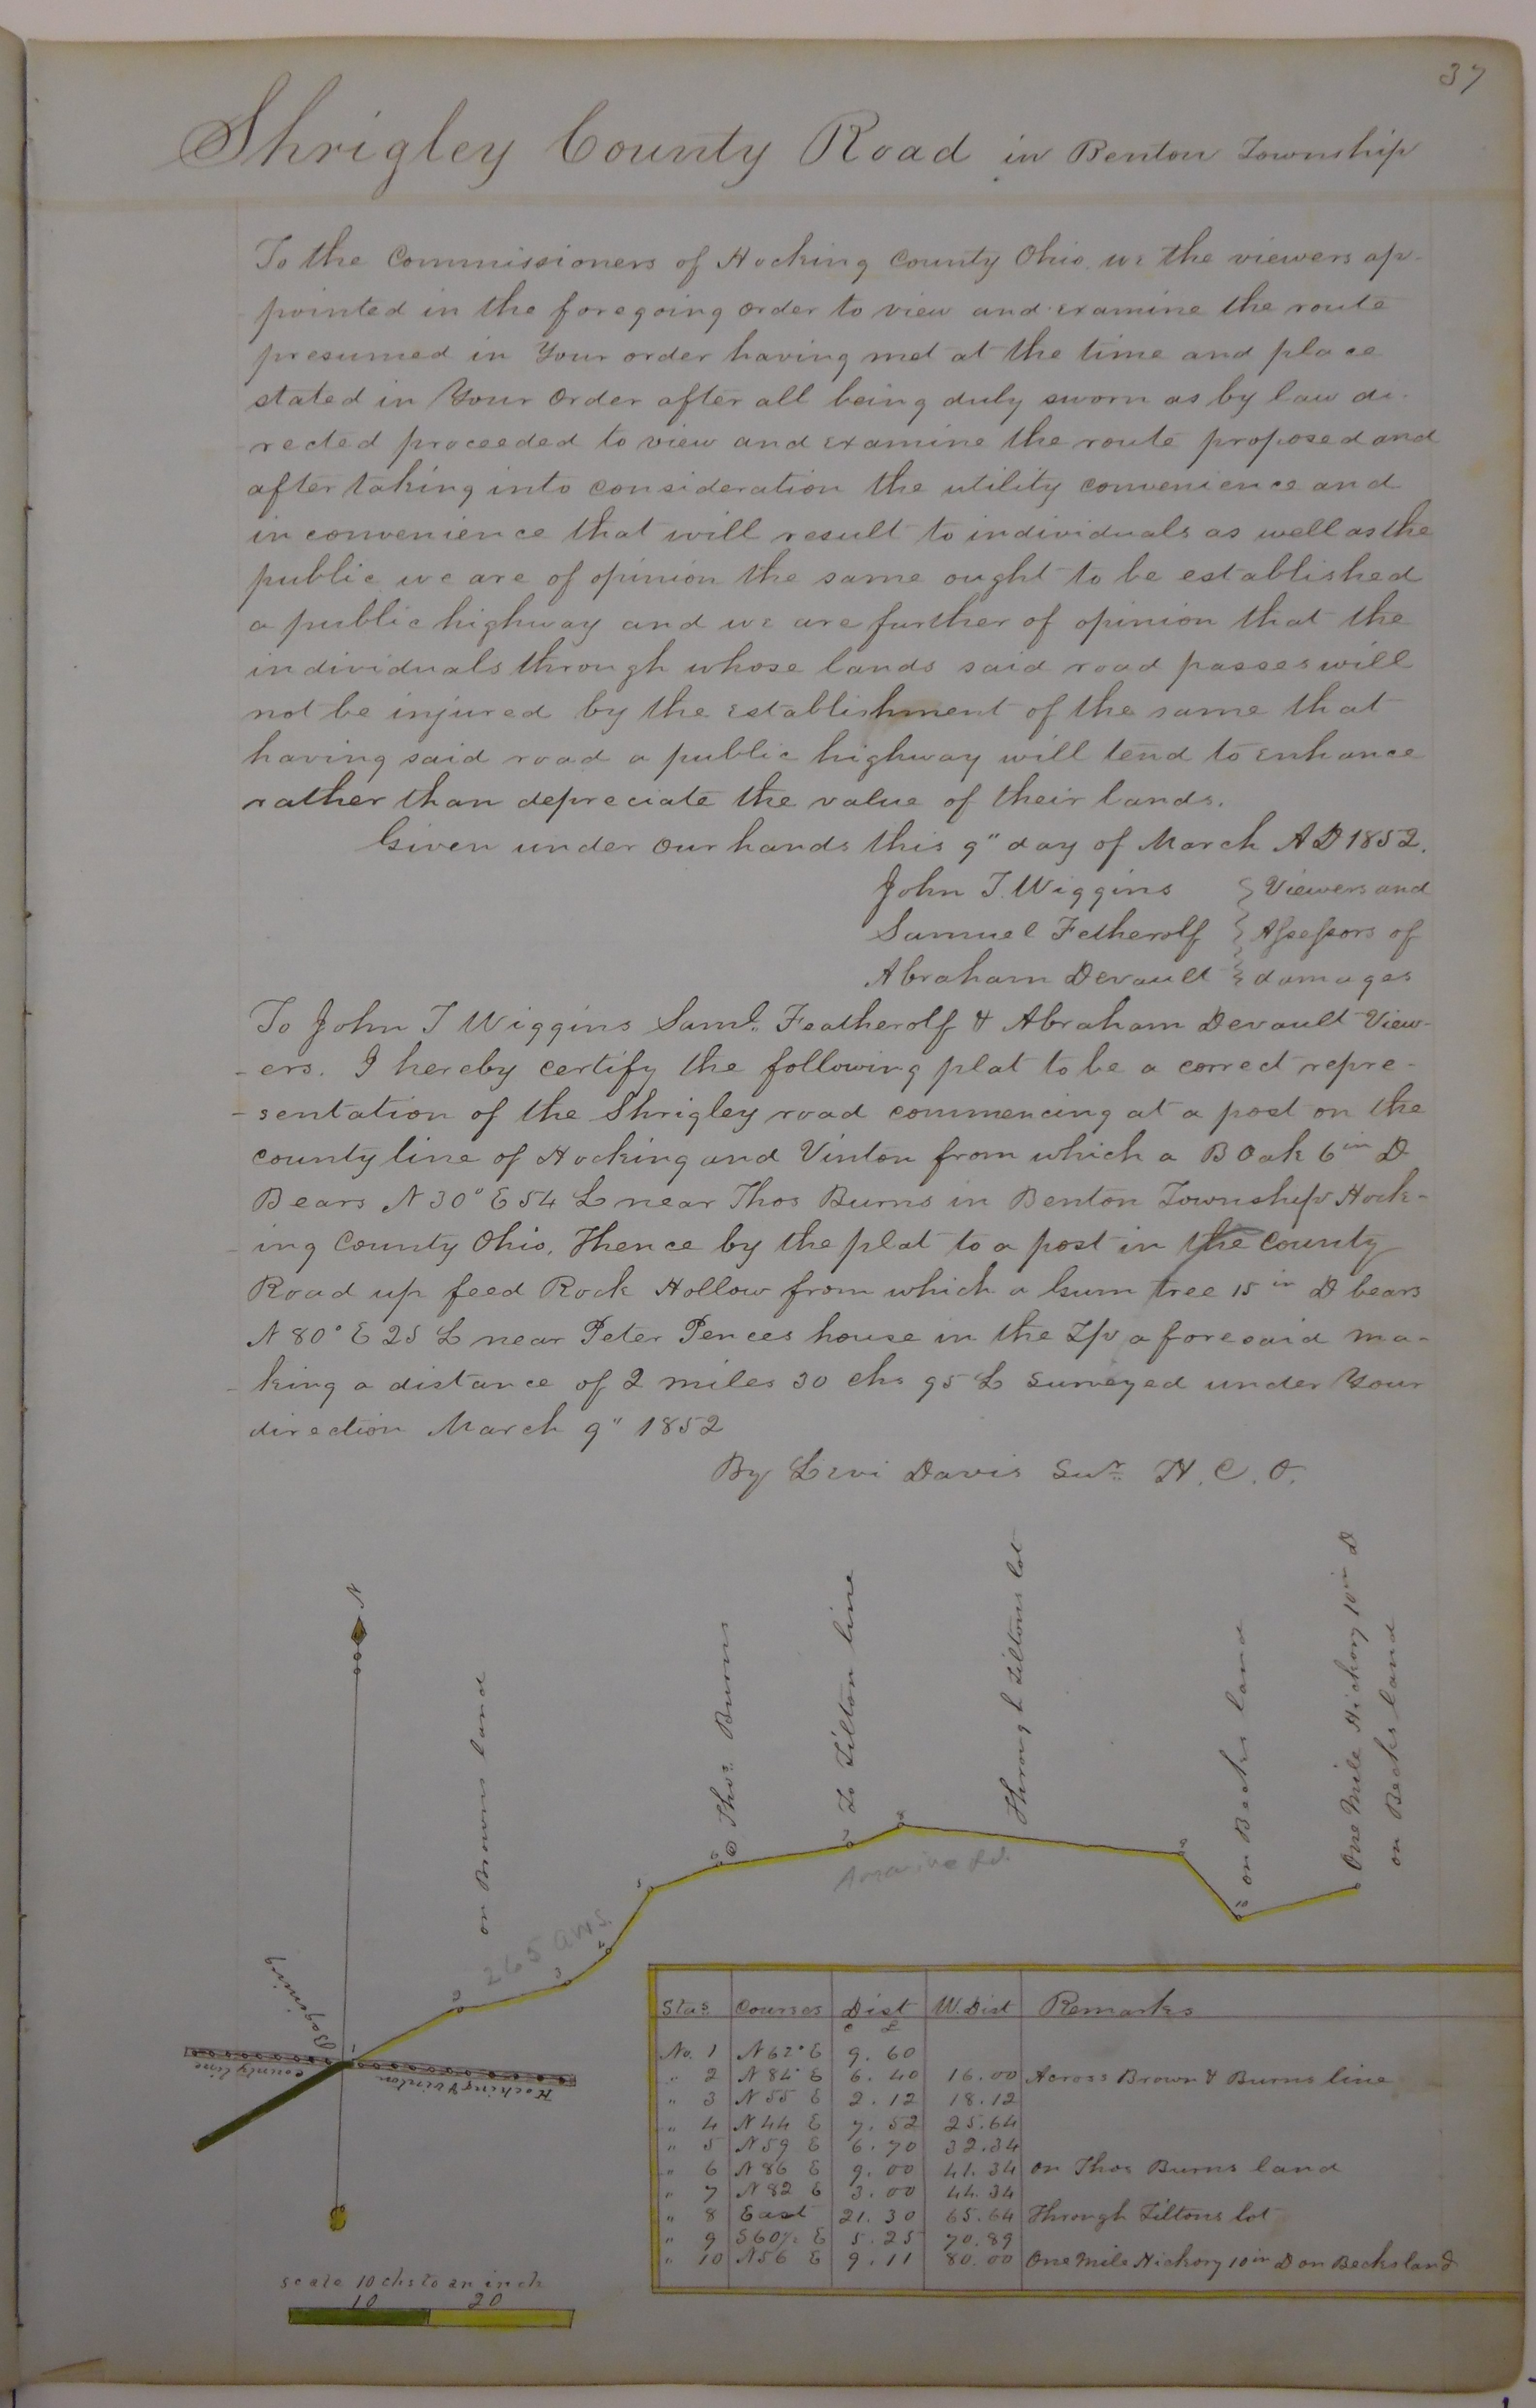 37
Shrigley County Road in Benton Township
To the Commissioners of Hocking County Ohio we the viewers ap-
pointed in the foregoing order to view and examine the route
presumed in Your order having met at the time and place
stated in Your Order after all being duly sworn as by law di-
rected proceeded to view and examine the route proposed and
after taking into consideration the utility convenience and
inconvenience that will result to individuals as well as the
public we are of opinion the same ought to be established
a public highway and we are further of opinion that the
individuals through whose lands said road passes will
not be injured by the establishment of the same that
having said road a public highway will tend to enhance
rather than depreciate the value of their lands.
Given under our hands this 9" day of March A D 1852.
John T. Wiggins } Viewers and
Samuel Fetherolf } Assessors of
Abraham Devault } damages
To John T Wiggins Saml. Featherolf & Abraham Devault View-
-ers. I hereby certify the following plat to be a correct repre-
-sentation of the Shrigley road commencing at a post on the
county line of Hocking and Vinton from which a B Oak 6 in D
Bears N 30° E 54 L near Thos Burns in Benton Township Hock-
-ing County Ohio, Thence by the plat to a post in the County
Road up feed Rock Hollow from which a Gum tree 15 in D bears
N 80° E 25 L near Peter Pences house in the Tp aforesaid ma-
-king a distance of 2 miles 30 chs 95 L Surveyed under Your
direction March 9" 1852
By Levi Davis Sur. H. C. O.
N
on Browns land
Thos. Burns
To Tilton line
Through Tiltons lot
on Becks land
One Mile Hickory 10 in D
on Becks land
Begining
county line
Hocking & Vinton
265 aws.
1
2
3
4
5
6
7
8
9
10
Stas. Courses Dist W. Dist Remarks
C L
No. 1 N 62° E 9. 60
" 2 N 84° E 6. 40 16.00 Across Brown & Burns line
" 3 N 55 E 2. 12 18.12
" 4 N 44 E 7. 52 25.64
" 5 N 59 E 6. 70 32.34
" 6 N 86 E 9. 00 41. 34 on Thos Burns land
" 7 N 82 E 3. 00 44. 34
" 8 East 21. 30 65.64 Through Tiltons lot
" 9 S 60½ E 5. 25 70. 89
" 10 N 56 E 9. 11 80. 00 One Mile Hickory 10 in D on Becks land
scale 10 chs to an inch
10 20